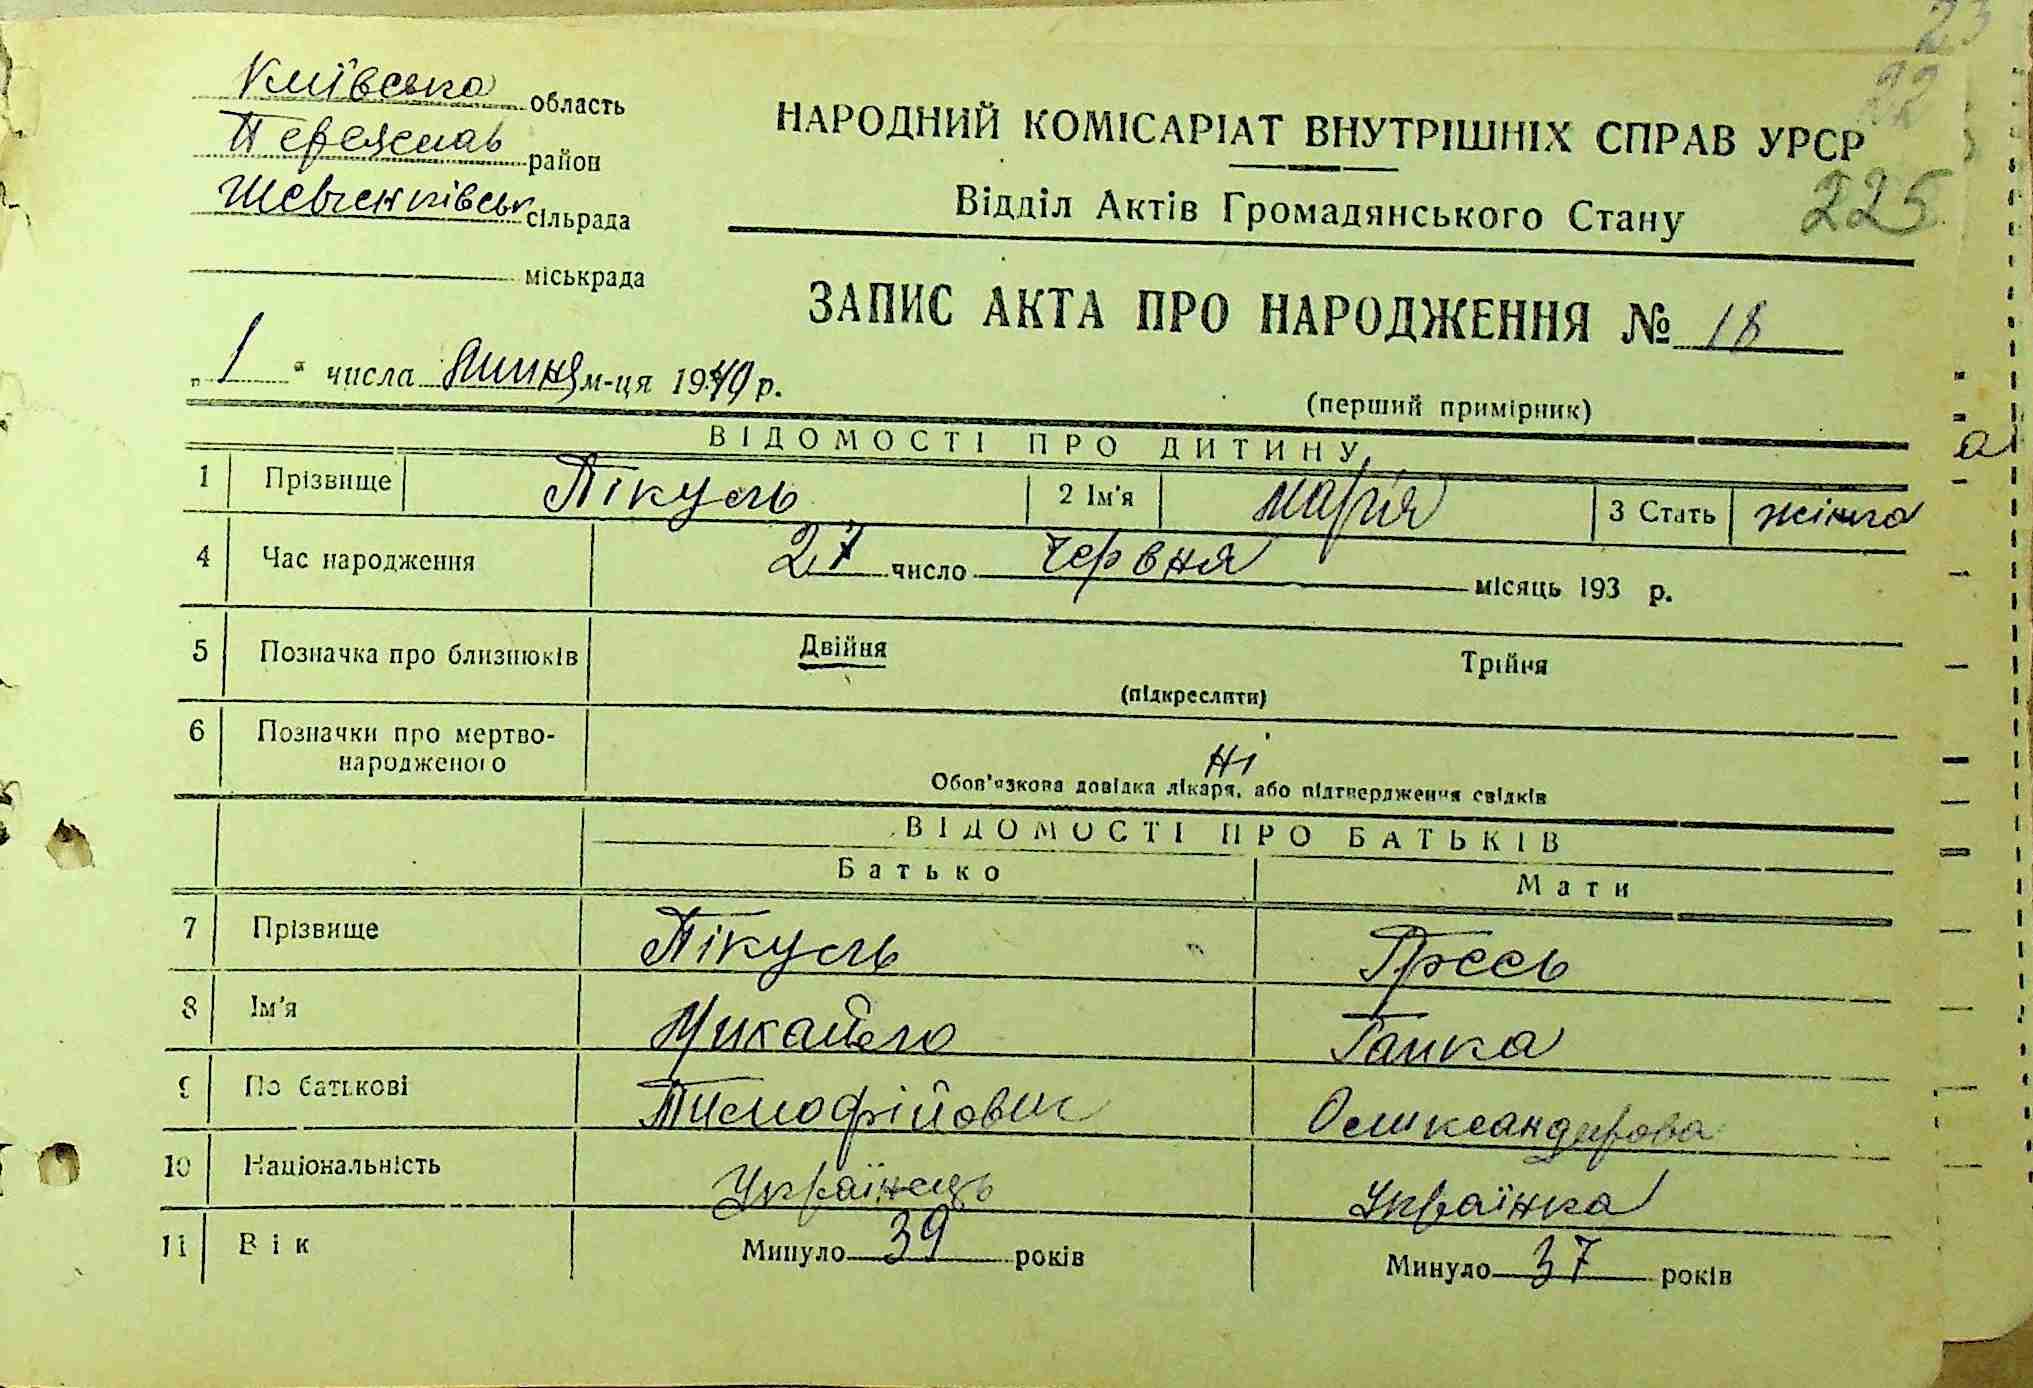 23
22
225
Київська область
Переяслав район
Шевченківськ сільрада
міськрада
НАРОДНИЙ КОМІСАРІАТ ВНУТРІШНІХ СПРАВ УРСР
Відділ Актів Громадянського Стану
ЗАПИС АКТА ПРО НАРОДЖЕННЯ № 18
„ 1 “ числа липня м-ця 1940 р.
(перший примірник)
ВІДОМОСТІ ПРО ДИТИНУ
1 Прізвище Пікуль 2 Ім'я Марія 3 Стать жіноча
4 Час народження 27 число червня місяць 193 р.
5 Позначка про близнюків Двійня Трійня
(підкреслити)
6 Позначки про мертво-
народженого ні
Обов'язкова довідка лікаря, або підтвердження свідків
ВІДОМОСТІ ПРО БАТЬКІВ
Батько Мати
7 Прізвище Пікуль
8 Ім'я Михайло Ганка
9 По батькові Тимофійович Олександрова
10 Національність Українець Українка
11 Вік Минуло 39 років Минуло 37 років